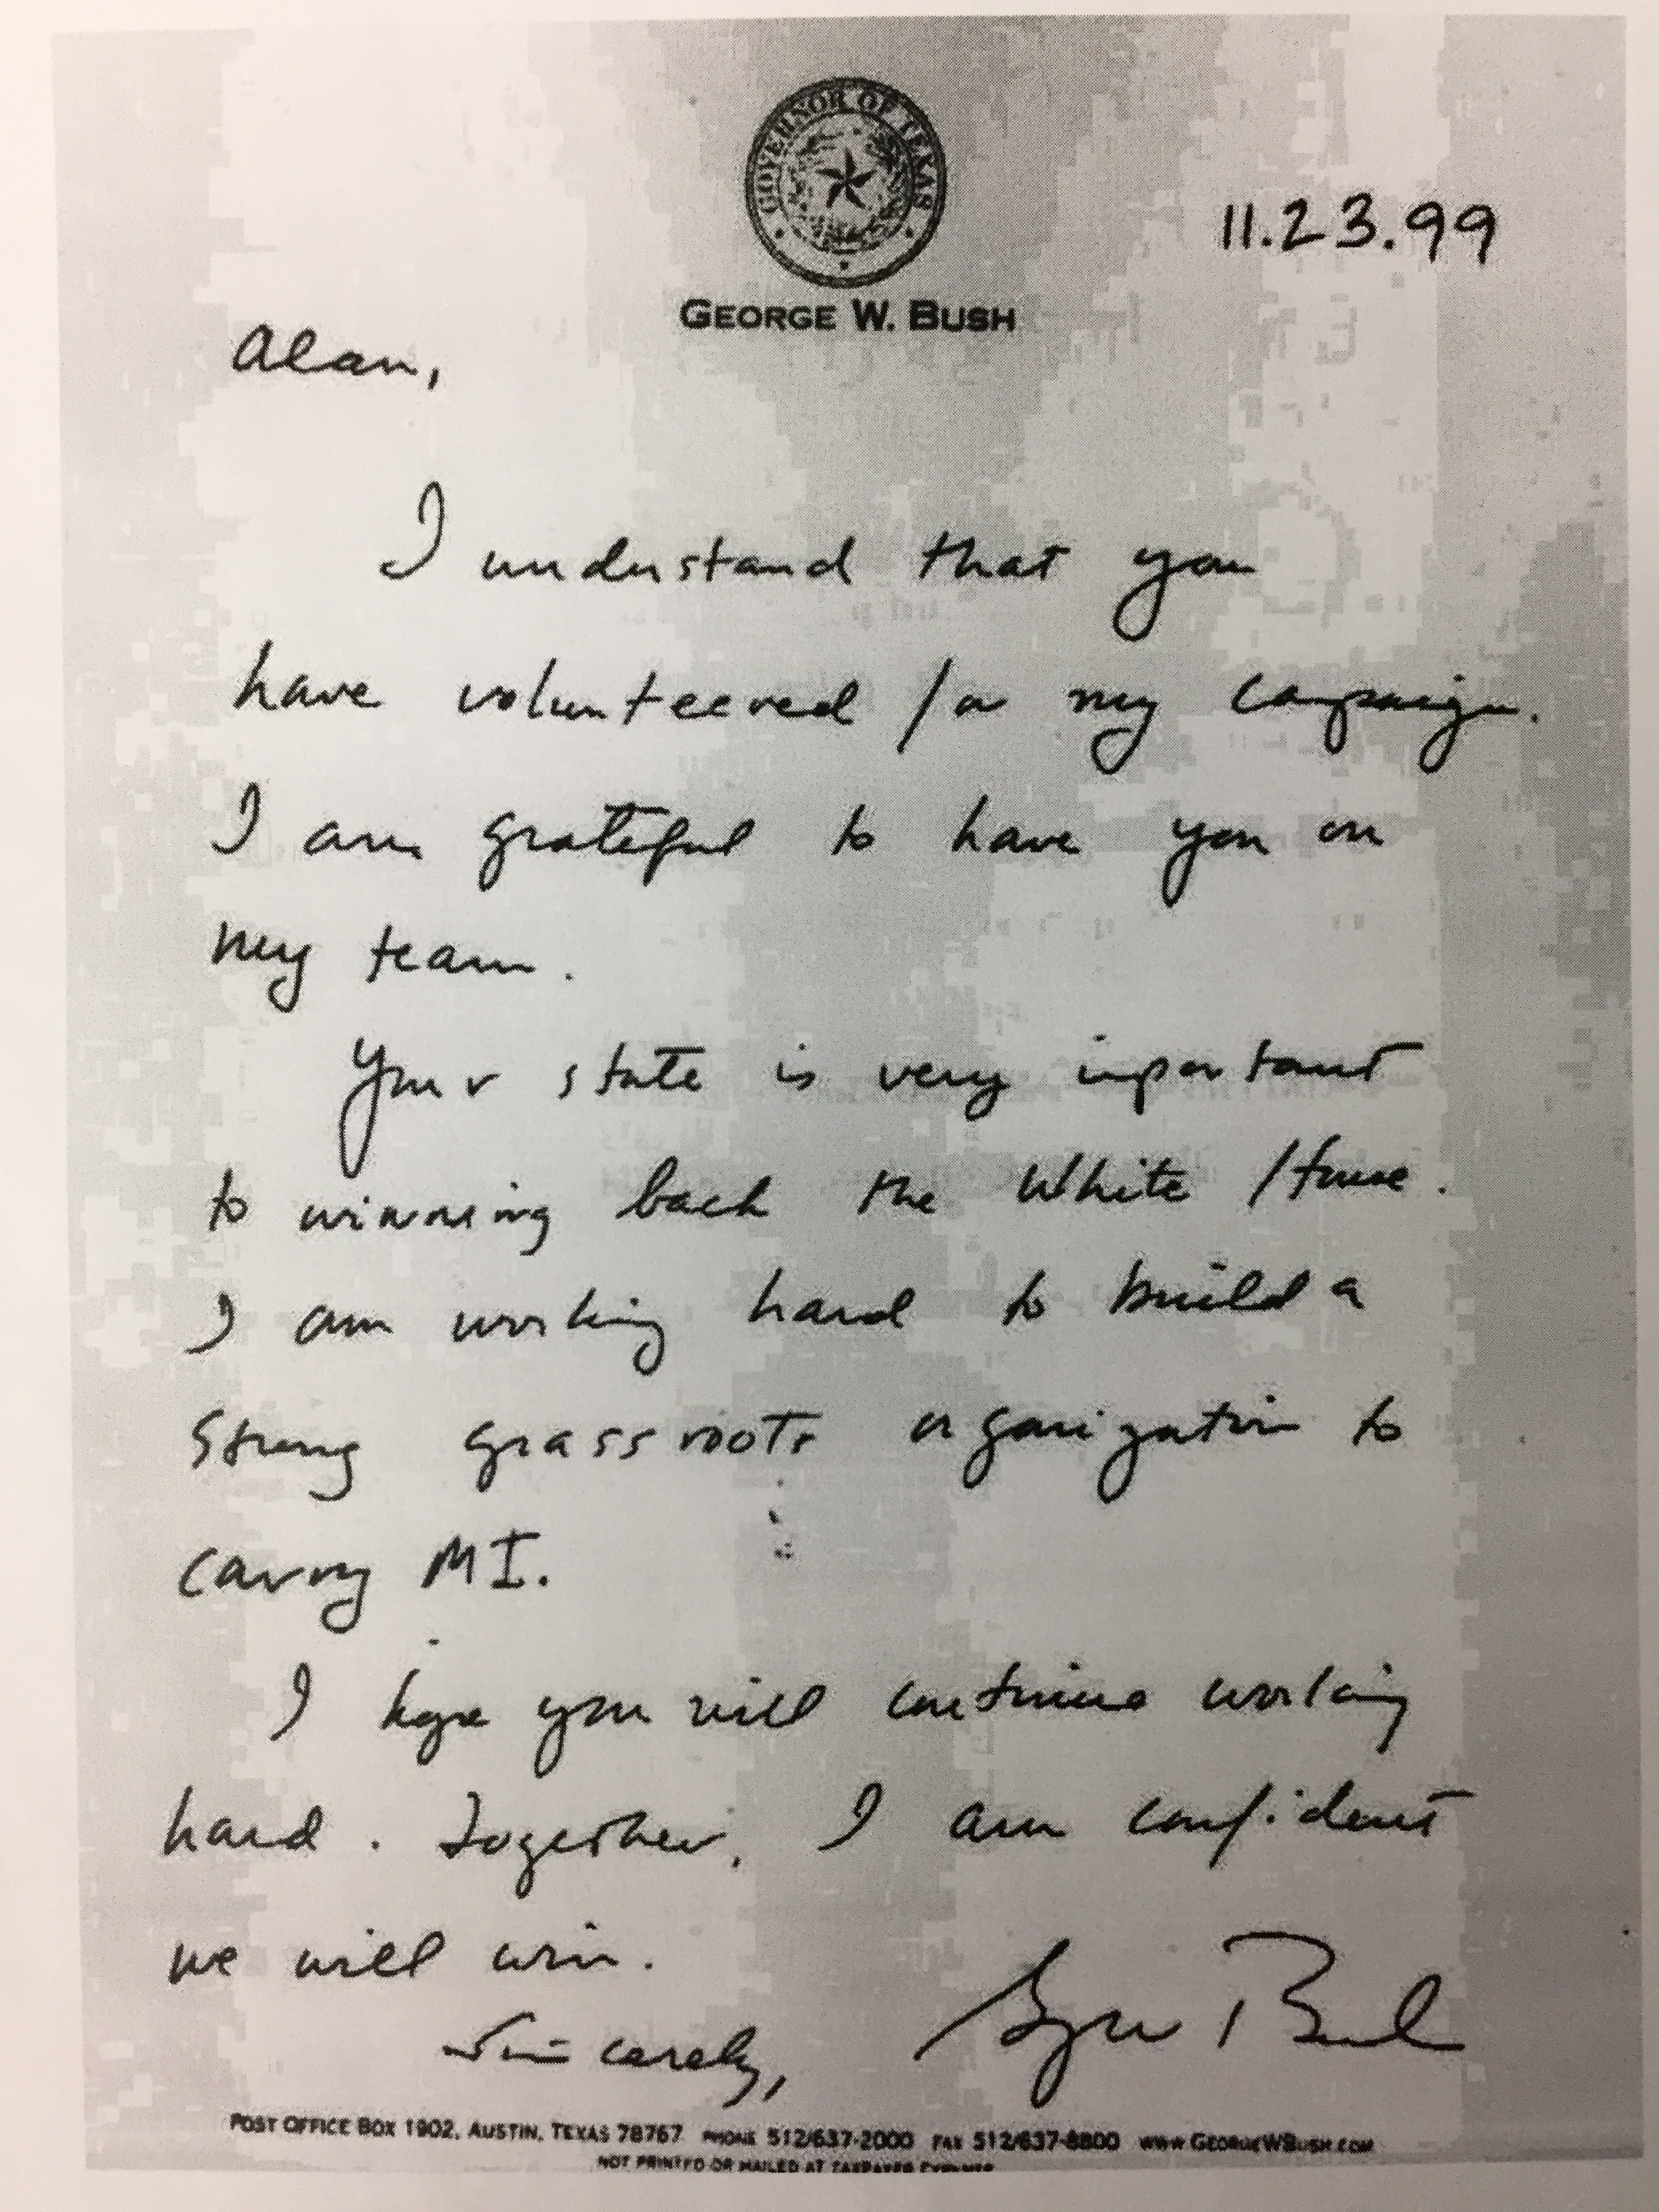 GOVERNOR OF TEXAS
11.23.99
GEORGE W. BUSH
Alan,
I understand that you
have volunteered for my campaign.
I am grateful to have you on
my team.
Your state is very important
to winning back the White House.
I am working hard to build a
strong grassroots organization to
carry MI.
I hope you will continue working
hard. Together, I am confident
we will win.
Sincerely,
George Bush
POST OFFICE BOX 1902, AUSTIN, TEXAS 78767 PHONE 512/637-2000 FAX 512/637-8800 WWW.GEORGEWBUSH.COM
NOT PRINTED OR MAILED AT TAXPAYER EXPENSE